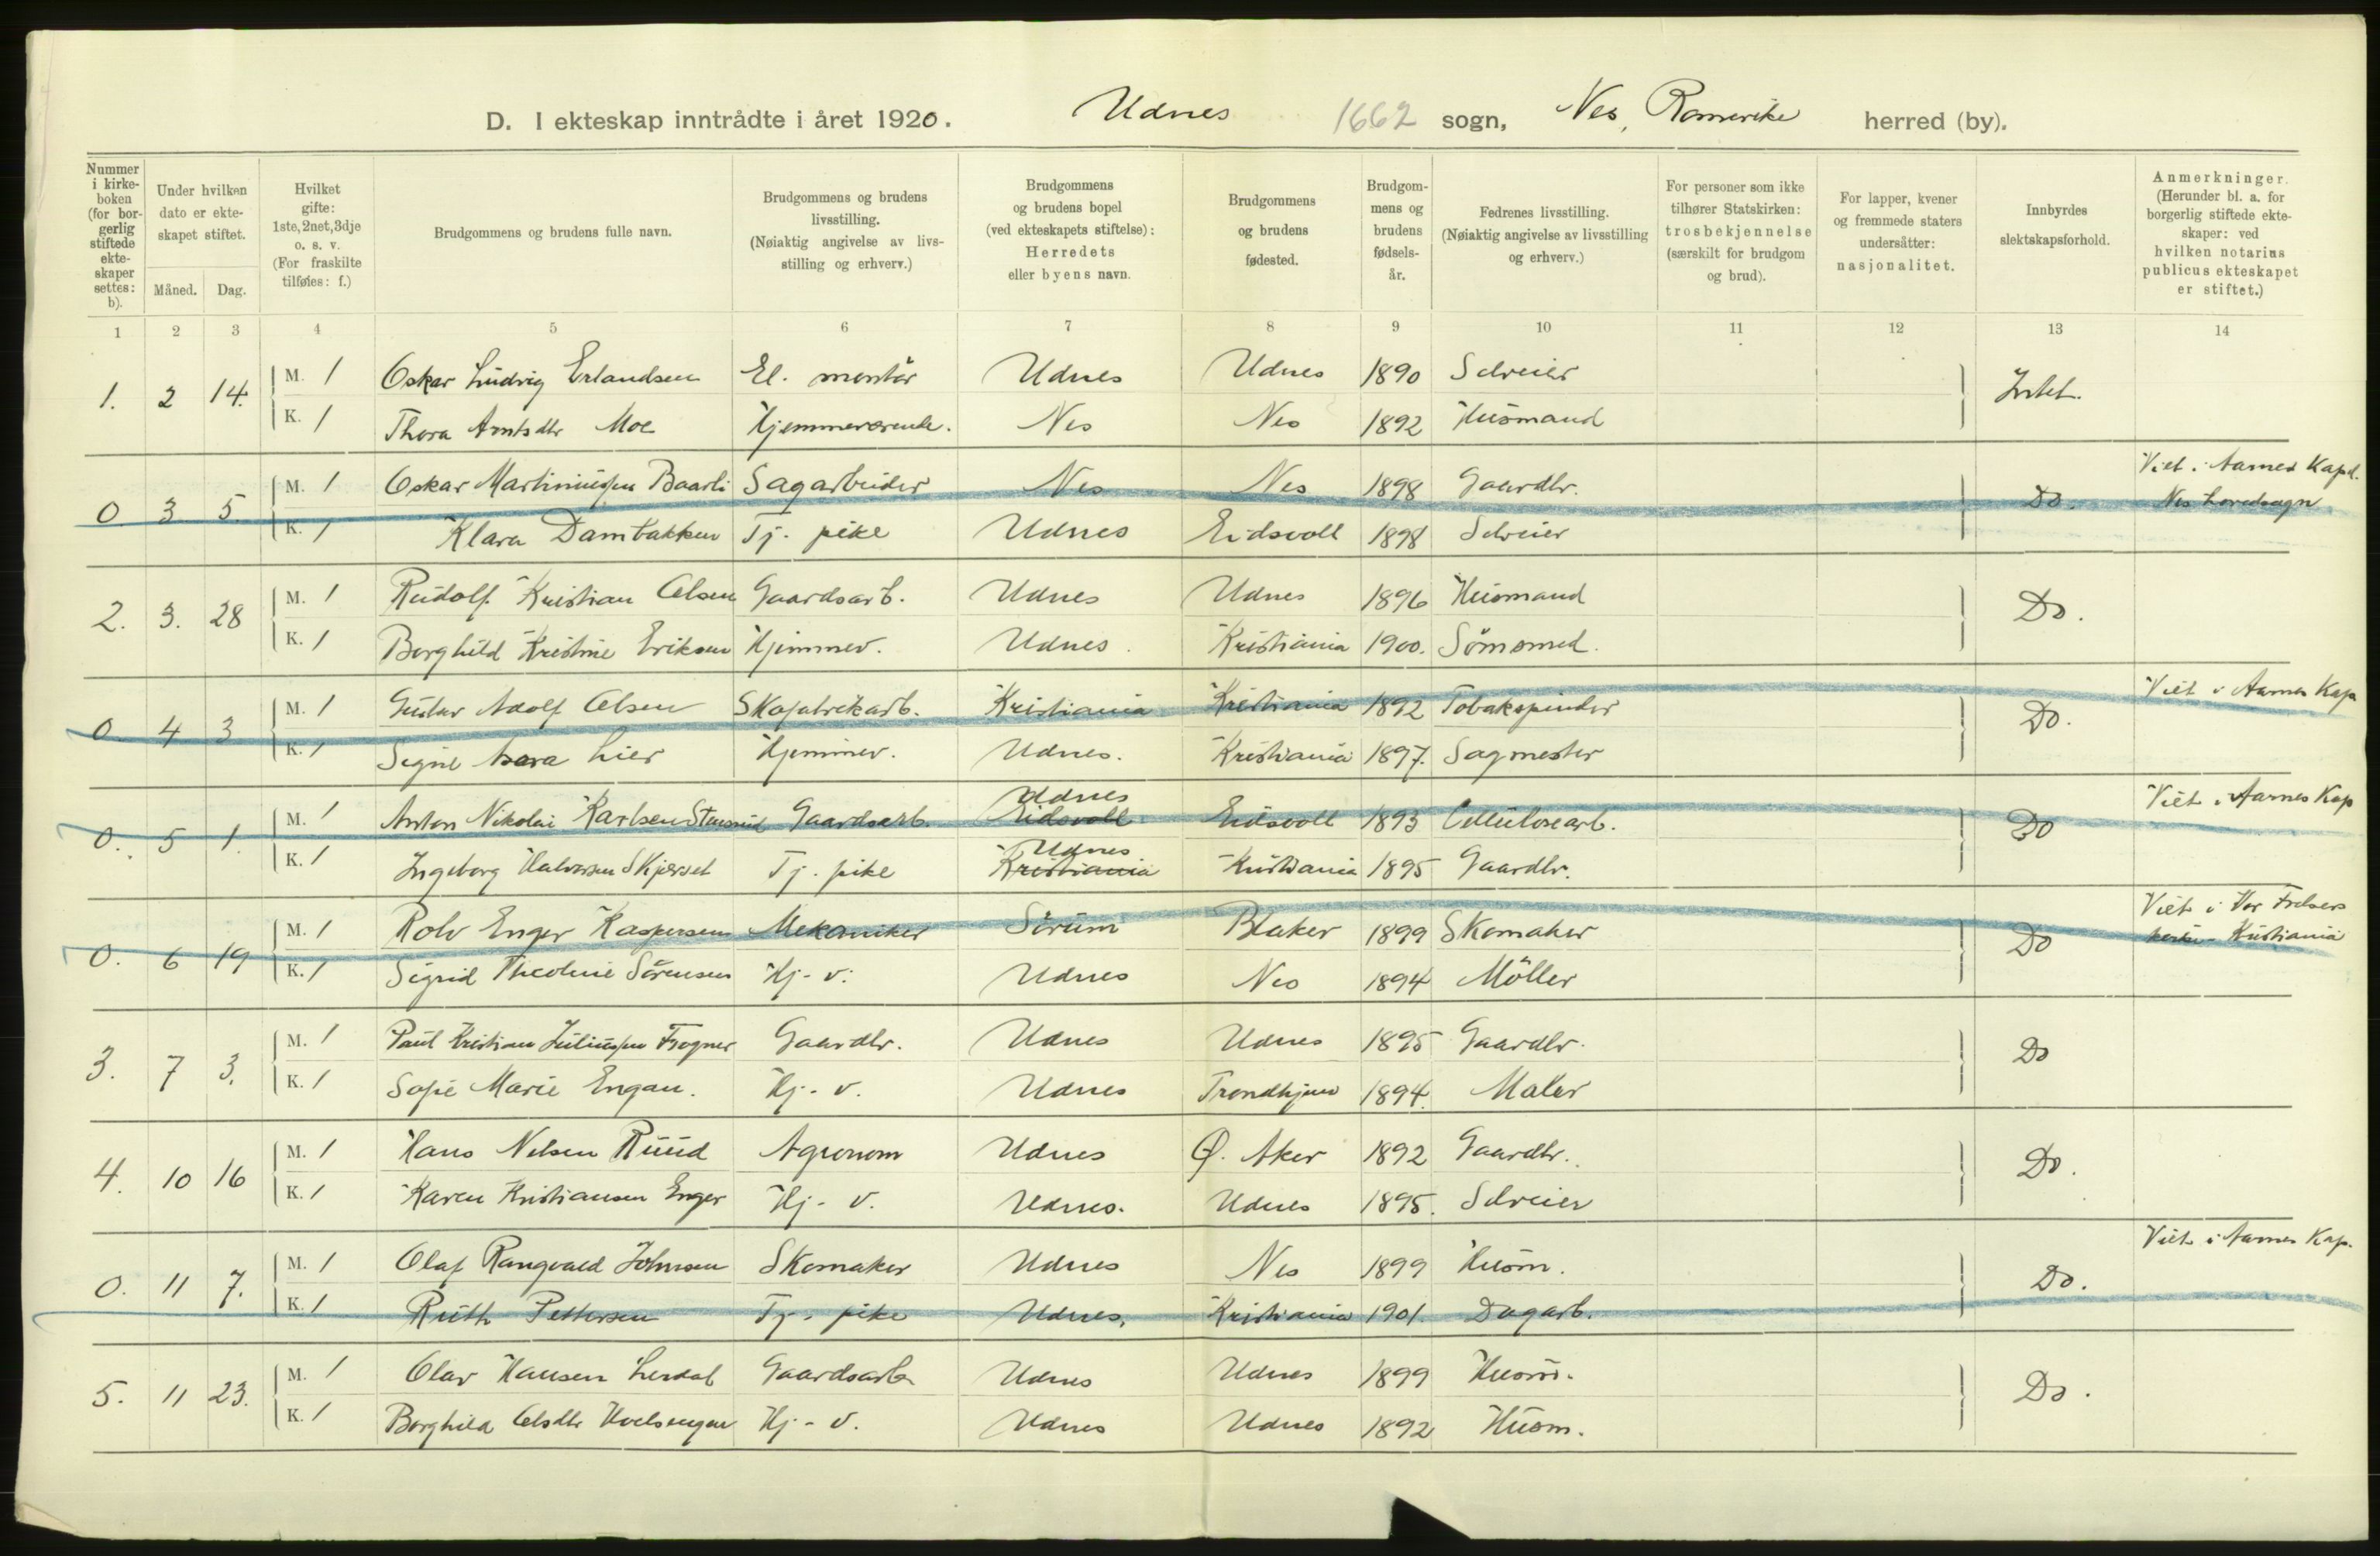 D. I ekteskap inntrådte i året 1920. Udnes 1662 sogn, Nes, Romerike herred (by).
Nummer i kirkeboken (for borgerlig stiftede ekteskaper settes: b).
Under hvilken dato er ekteskapet stiftet.
Måned. Dag.
Hvilket gifte: 1ste, 2net, 3dje o. s. v. (For fraskilte tilføies: f.)
Brudgommens og brudens fulle navn.
Brudgommens og brudens livsstilling. (Nøiaktig angivelse av livsstilling og erhverv.)
Brudgommens og brudens bopel (ved ekteskapets stiftelse): Herredets eller byens navn.
Brudgommens og brudens fødested.
Brudgommens og brudens fødselsår.
Fedrenes livsstilling. (Nøiaktig angivelse av livsstilling og erhverv.)
For personer som ikke tilhører Statskirken: trosbekjennelse (særskilt for brudgom og brud).
For lapper, kvener og fremmede staters undersåtter: nasjonalitet.
Innbyrdes slektskapsforhold.
Anmerkninger. (Herunder bl. a. for borgerlig stiftede ekteskaper: ved hvilken notarius publicus ekteskapet er stiftet.)
1 2 3 4 5 6 7 8 9 10 11 12 13 14
1. 2 14. M. 1 Oskar Ludvig Erlandsen El. montør Udnes Udnes 1890 Selveier Intet.
K. 1 Thora Arntsdtr Moe Hjemmeværende. Nes Nes 1892 Husmand
0 3 5. M. 1 Oskar Martiniussen Baarli Sagarbeider Nes Nes 1898 Gaardbr. Do. Viet i Aarnes Kapel. Nes hovedsogn
K. 1 Klara Dambakken Tj. pike Udnes Eidsvoll 1898 Selveier
2. 3. 28 M. 1 Rudolf Kristian Olsen Gaardsarb. Udnes Udnes 1896 Husmand Do.
K. 1 Borghild Kristine Eriksen Hjemmev. Udnes. Kristiania 1900. Sömsmed.
0 4 3 M. 1 Gustav Adolf Olsen Skofabrikarb. Kristiania Kristiania 1892 Tobakspinder Do. Viet i Aarnes Kap
K. 1 Signe Aara Lier Hjemmev. Udnes. Kristiania 1897. Sagmester
0. 5 1. M. 1 Anton Nikolai Karlsen Stensrud Gaardsarb. Udnes Eidsvoll Eidsvoll 1893 Cellulosearb. Do Viet i Aarnes Kap
K. 1 Ingeborg Halvorsen Skjerset Tj. pike Udnes Kristiania Kristiania 1895 Gaardbr.
0. 6 19 M. 1 Rolv Enger Kaspersen Mekaniker Sörum Blaker 1899 Skomaker Do Viet i Vor Frelsers kirke - Kristiania
K. 1 Sigrid Theoline Sörensen Hj. v. Udnes Nes 1894 Möller
3. 7 3. M. 1 Paul Kristian Juliussen Frogner Gaardbr. Udnes Udnes 1895 Gaardbr. Do
K. 1 Sofie Marie Engan. Hj. v. Udnes Trondhjem 1894. Maler
4. 10 16 M. 1 Hans Nilsen Ruud Agronom Udnes Ø. Aker 1892 Gaardbr. Do.
K. 1 Karen Kristiansen Enger Hj. v. Udnes. Udnes 1895. Selveier
0. 11 7. M. 1 Olaf Rangvald Johnsen Skomaker Udnes Nes 1899 Husm. Do. Viet i Aarnes Kap.
K. 1 Ruth Pettersen Tj. pike Udnes. Kristiania 1901. Dagarb.
5. 11 23. M. 1 Olav Hansen Gaardsarb Udnes Udnes 1899 Husm. Do.
K. 1 Borghild Olsdtr Hj. v. Udnes Udnes 1892 Husm.